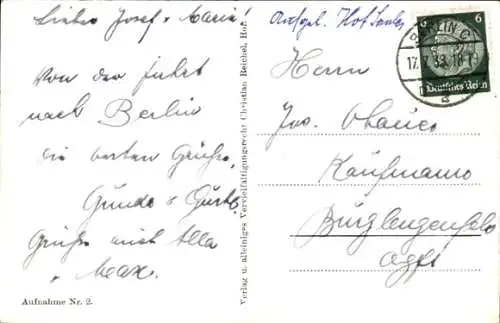 Lieber Josef u. Maria!
Von der Fahrt
nach Berlin
die besten Grüße,
Gunda &
Grüße auch Alla
Max.
Aufnahme Nr. 2.
Verlag u. alleiniges Vervielfältigungsrecht Christian Reichel, Hof
BERLIN C
17.7.38
6
Deutsches Reich
Herrn
Jos.
Kaufmann
Burglengenfeld